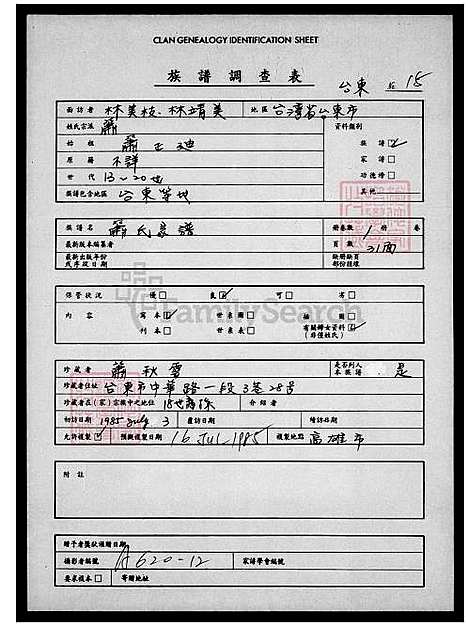 CLAN GENEALOGY IDENTIFICATION SHEET
族譜調查表
台東 15
面訪者 林美枝、林靖美 地區 台灣省台東市
姓氏宗派 蕭 資料類別
始祖 蕭 族譜☑
原籍 不詳 家譜□
世代 13~20世 功德譜□
族譜包含地區 台東等地 其他
族譜名 蕭氏家譜 冊卷數 1 冊 卷
最新版本編纂者 頁數 31面
最新出版年份或序跋日期 缺冊缺頁部份註錄
保管狀況 優□ 良☑ 可□ 劣□
FamilySearch
內容 寫本☑ 世系圖□ 插圖□
刊本□ 世系表□ 有關婦女資料☑ (非僅姓氏)
珍藏者 蕭秋雪 是否列入本族譜 是
珍藏者住址 台東市中華路一段3巷28号
珍藏者在(家)宗族中之地位 18世裔孫 介紹者
初訪日期 1985 July 3 覆訪日期 續訪日期
允許複製☑ 預擬複製日期 16 Jul 1985 複製地點 高雄市
附註
贈予者獎狀預贈日期
攝影者編號 A620-12 家譜學會編號
要求複本□ 寄贈地址